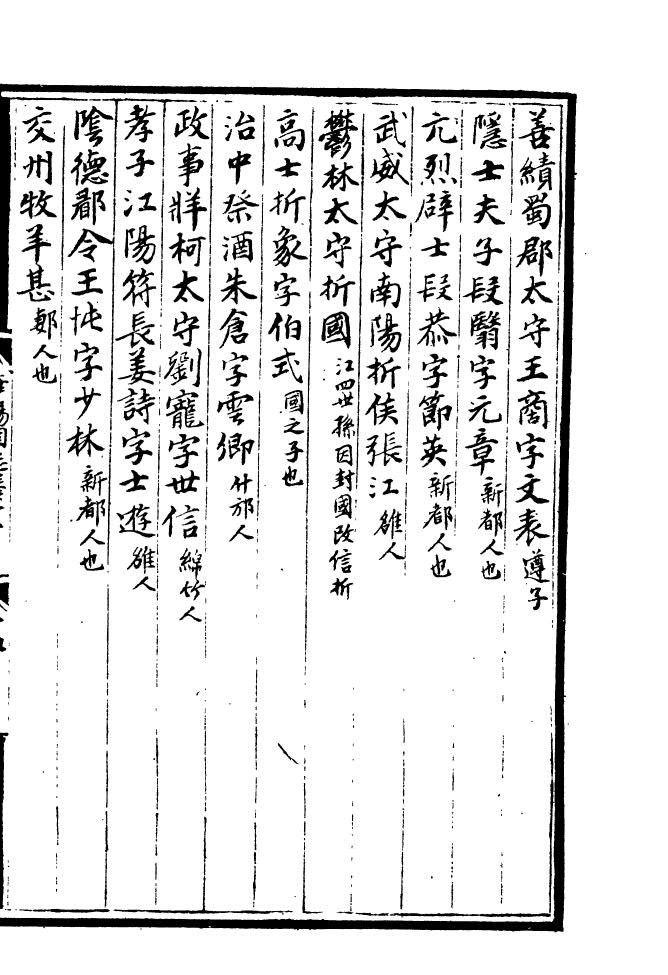 善績蜀郡太守王商字文表 遵子
隱士夫子段翳字元章 新都人也
亢烈辟士段恭字節英 新都人也
武威太守南陽折侯張江 雒人
鬱林太守折國 江四世孫因封國改信折
高士折象字伯式 國之子也
治中祭酒朱倉字雲卿 什邡人
政事牂柯太守劉寵字世信 綿竹人
孝子江陽符長姜詩字士遊 雒人
陰德郡令王忳字少林 新都人也
交州牧羊甚 郪人也